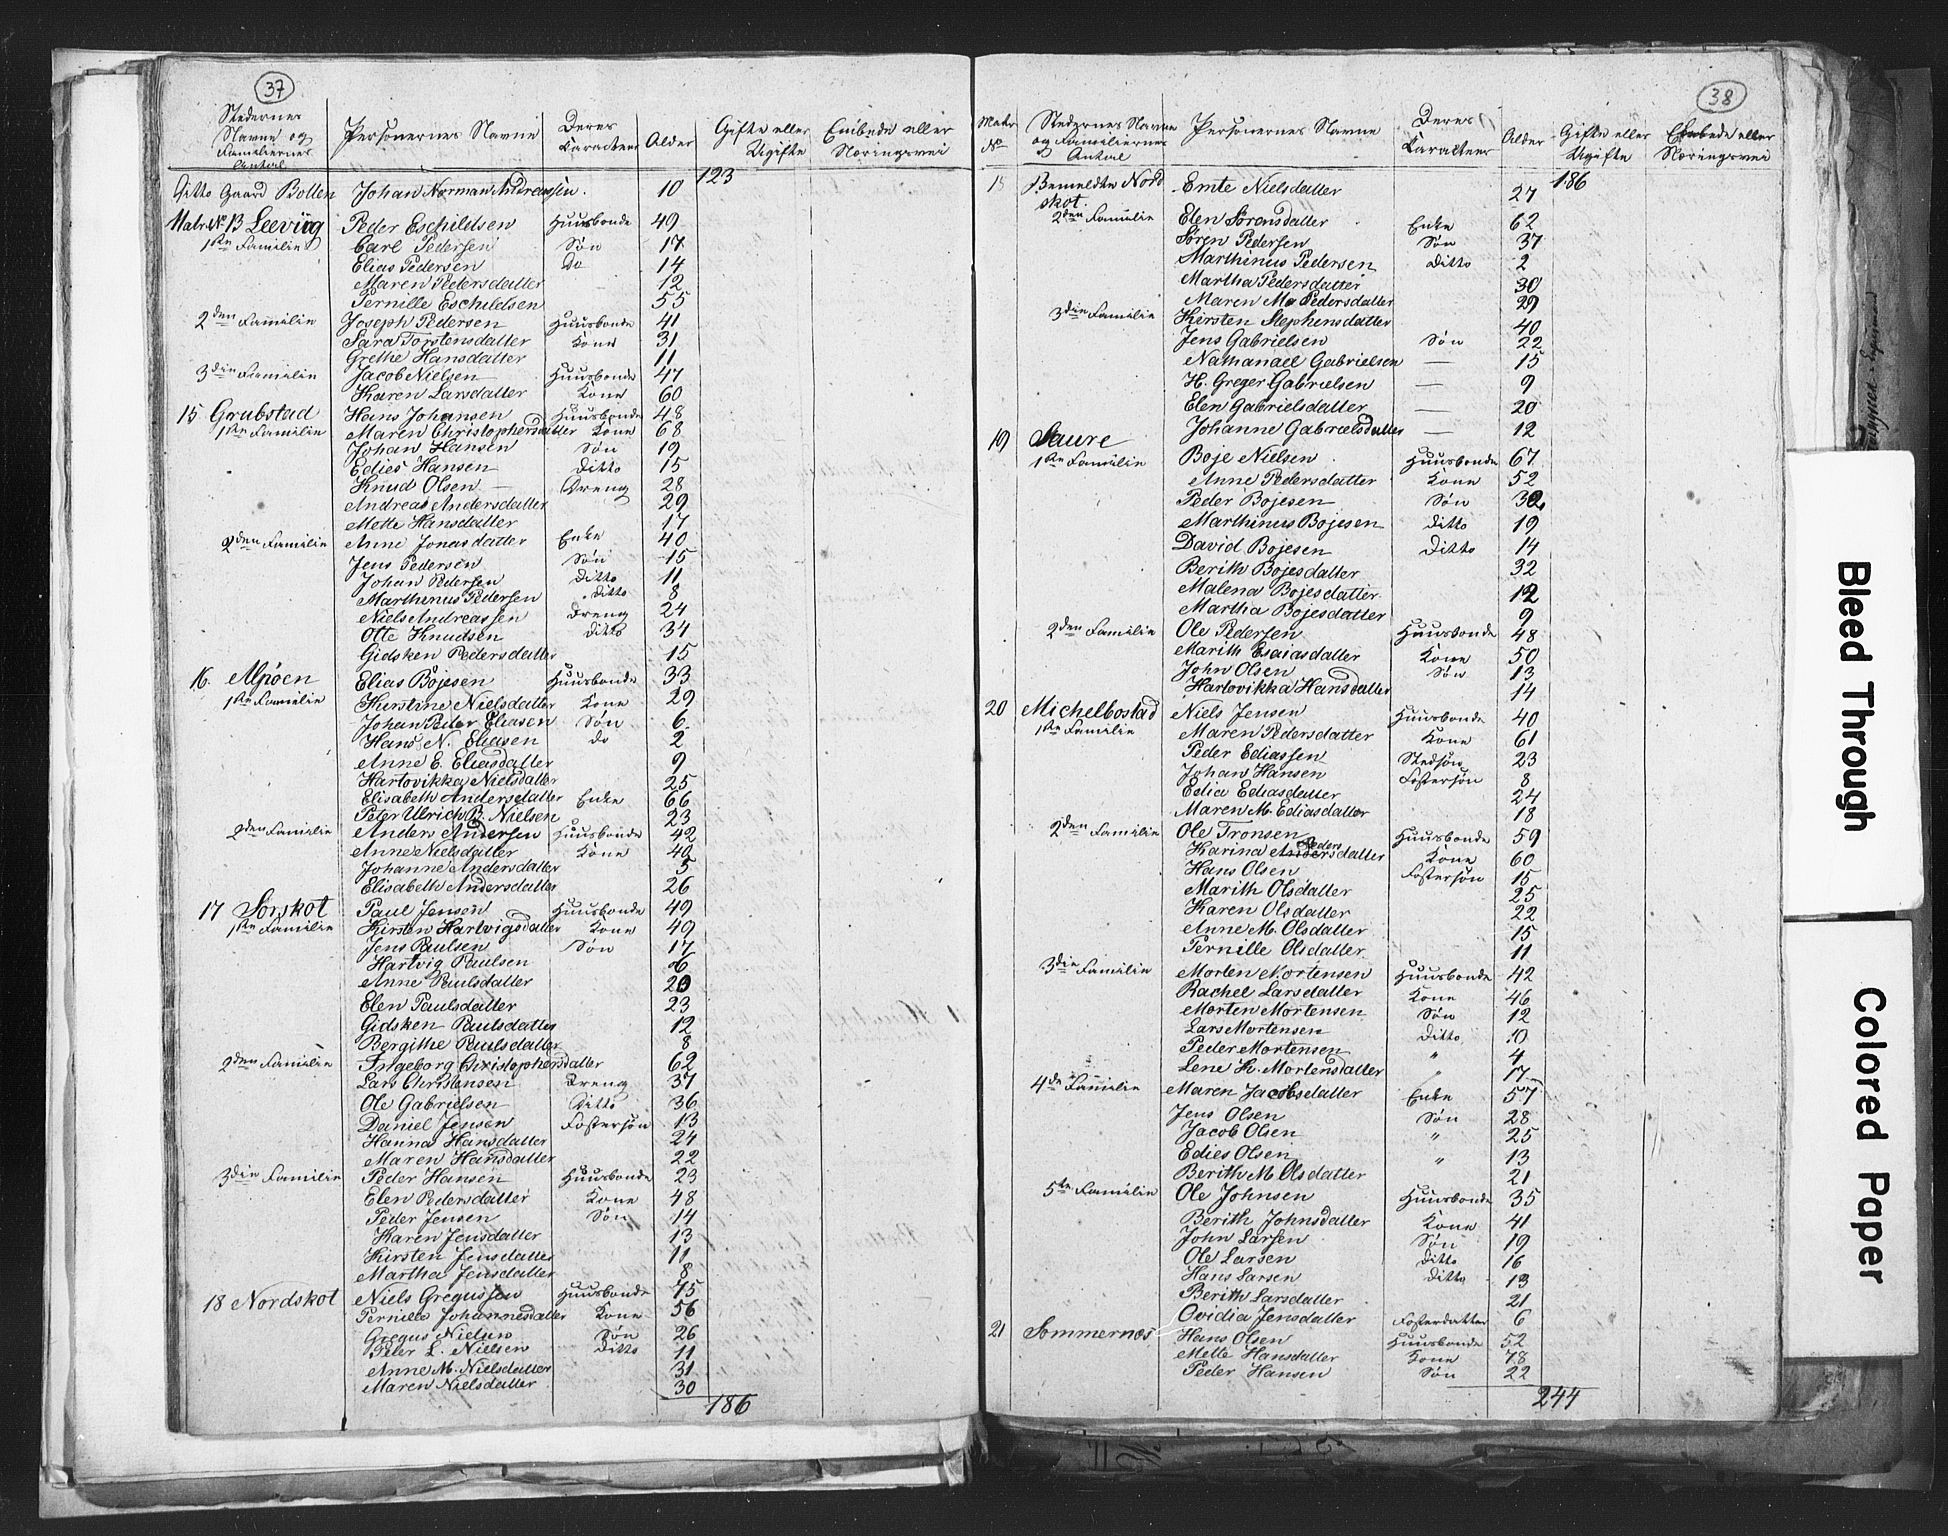 37
Stedernes Navne og Familiernes Antal | Personernes Navne | Deres Caracteer | Alder | Gifte eller Ugifte | Embede eller Næringsvei
123
Ditto Gaard Bollen Johan Norman Andreassen 10
Matr. No 13 Leevüg Peder Eschildsen Huusbonde 49
1ste Familie Carl Pedersen Søn 17
Elias Pedersen do 14
Maren Pedersdatter — 12
Pernille Eschildsen 55
2den Familie Joseph Pedersen Huusbonde 41
Sara Torstensdatter Kone 31
Grethe Hansdatter 11
3die Familie Jacob Nielsen Huusbonde 47
Karen Larsdatter Kone 60
15 Grubstad Hans Johansen Huusbonde 48
1ste Familie Maren Christophersdatter Kone 68
Johan Hansen Søn 19
Edies Hansen Ditto 15
Knud Olsen — Dreng 28
Andreas Andersdatter 29
Mette Hansdatter 17
2den Familie Anne Jonasdatter Enke 40
Jens Pedersen Søn 15
Johan Pedersen Ditto 11
Marthinus Pedersen Ditto 8
Niels Andreassen Dreng 24
Otte Knudsen Ditto 34
Gidsken Pedersdatter 15
16 Alpöen Elias Bojesen Huusbonde 33
1ste Familie Kirstine Nielsdatter Kone 29
Johan Peder Eliasen Søn 6
Hans N. Eliasen do 2
Anne E. Eliasdatter 9
Hartvikka Nielsdatter 25
Elisabeth Andersdatter Enke 66
Peter Ulrich B. Nielsen 23
2den Familie Anders Andersen Huusbonde 42
Anne Nielsdatter Kone 40
Johanne Andersdatter 5
Elisabeth Andersdatter 26
17 Sorskot Paul Jensen Huusbonde 49
1ste Familie Kirsten Hartvigsdatter Kone 49
Jens Paulsen Søn 17
Hartvig Paulsen 6
Anne Paulsdatter 20
Elen Paulsdatter 23
Gidsken Paulsdatter 12
Bergithe Paulsdatter 8
2den Familie Ingeborg Christophersdatter 62
Lars Christensen Dreng 37
Ole Gabrielsen Ditto 36
Daniel Jensen Fostersøn 13
Hanna Hansdatter 24
Maren Hansdatter 22
3die Familie Peder Hansen Huusbonde 23
Elen Pedersdatter Kone 48
Peder Jensen Søn 14
Karen Jensdatter 13
Kirsten Jensdatter 11
Martha Jensdatter 8
18 Nordskot Niels Gregussen Huusbonde 75
Pernille Johannesdatter Kone 56
Gregus Nielsen Søn 26
Peter L. Nielsen Ditto 11
Anne M. Nielsdatter 31
Maren Nielsdatter 30
186
38
Matr No | Stedernes Navne og Familiernes Antal | Personernes Navne | Deres Caracteer | Alder | Gifte eller Ugifte | Embede eller Næringsvei
186
18 Bemeldte Nordskot Emte Nielsdatter 27
2den Familie Elen Sörensdatter Enke 62
Sören Pedersen Søn 37
Marthinus Pedersen Ditto 2
Martha Pedersdatter 30
Maren M. Pedersdatter 29
3die Familie Kirsten Stephensdatter 40
Jens Gabrielsen Søn 22
Nathanael Gabrielsen — 15
H. Greger Gabrielsen — 9
Elen Gabrielsdatter — 20
Johanne Gabrielsdatter — 12
19 Saure
1ste Familie Boje Nielsen Huusbonde 67
Anne Pedersdatter Kone 52
Peder Bojesen Søn 32
Marthinus Bojesen Ditto 19
David Bojesen Ditto 14
Berith Bojesdatter 32
Malena Bojesdatter 12
Martha Bojesdatter 9
2den Familie Ole Pedersen Huusbonde 48
Marith Esaiasdatter Kone 50
John Olsen Søn 13
Hartovikka Hansdatter 14
20 Michelbostad Niels Jensen Huusbonde 40
1ste Familie Maren Pedersdatter Kone 61
Peder Ediassen Stedsøn 23
Johan Hansen Fostersøn 8
Edia Ediasdatter 24
Maren M. Ediasdatter 18
2den Familie Ole Tronsen Huusbonde 59
Karina Anders Pedersdatter Kone 60
Hans Olsen Fostersøn 15
Marith Olsdatter 25
Karen Olsdatter 22
Anne M. Olsdatter 15
Pernille Olsdatter 11
3die Familie Morten Mortensen Huusbonde 42
Rachel Larsdatter Kone 46
Morten Mortensen Søn 12
Lars Mortensen Ditto 10
Peder Mortensen " 4
Lene K. Mortensdatter " 17
4de Familie Maren Jacobsdatter Enke 57
Jens Olsen Søn 28
Jacob Olsen " 25
Edies Olsen " 13
Berith M. Olsdatter 21
5te Familie Ole Johnsen Huusbonde 35
Berith Johnsdatter Kone 41
John Larsen Søn 19
Ole Larsen Ditto 16
Hans Larsen Ditto 13
Berith Larsdatter 21
Ovidia Jensdatter Fosterdatter 6
21 Sommernes Hans Olsen Huusbonde 52
Mette Hansdatter Kone 78
Peder Hansen Søn 22
244
Bleed Through
Colored Paper